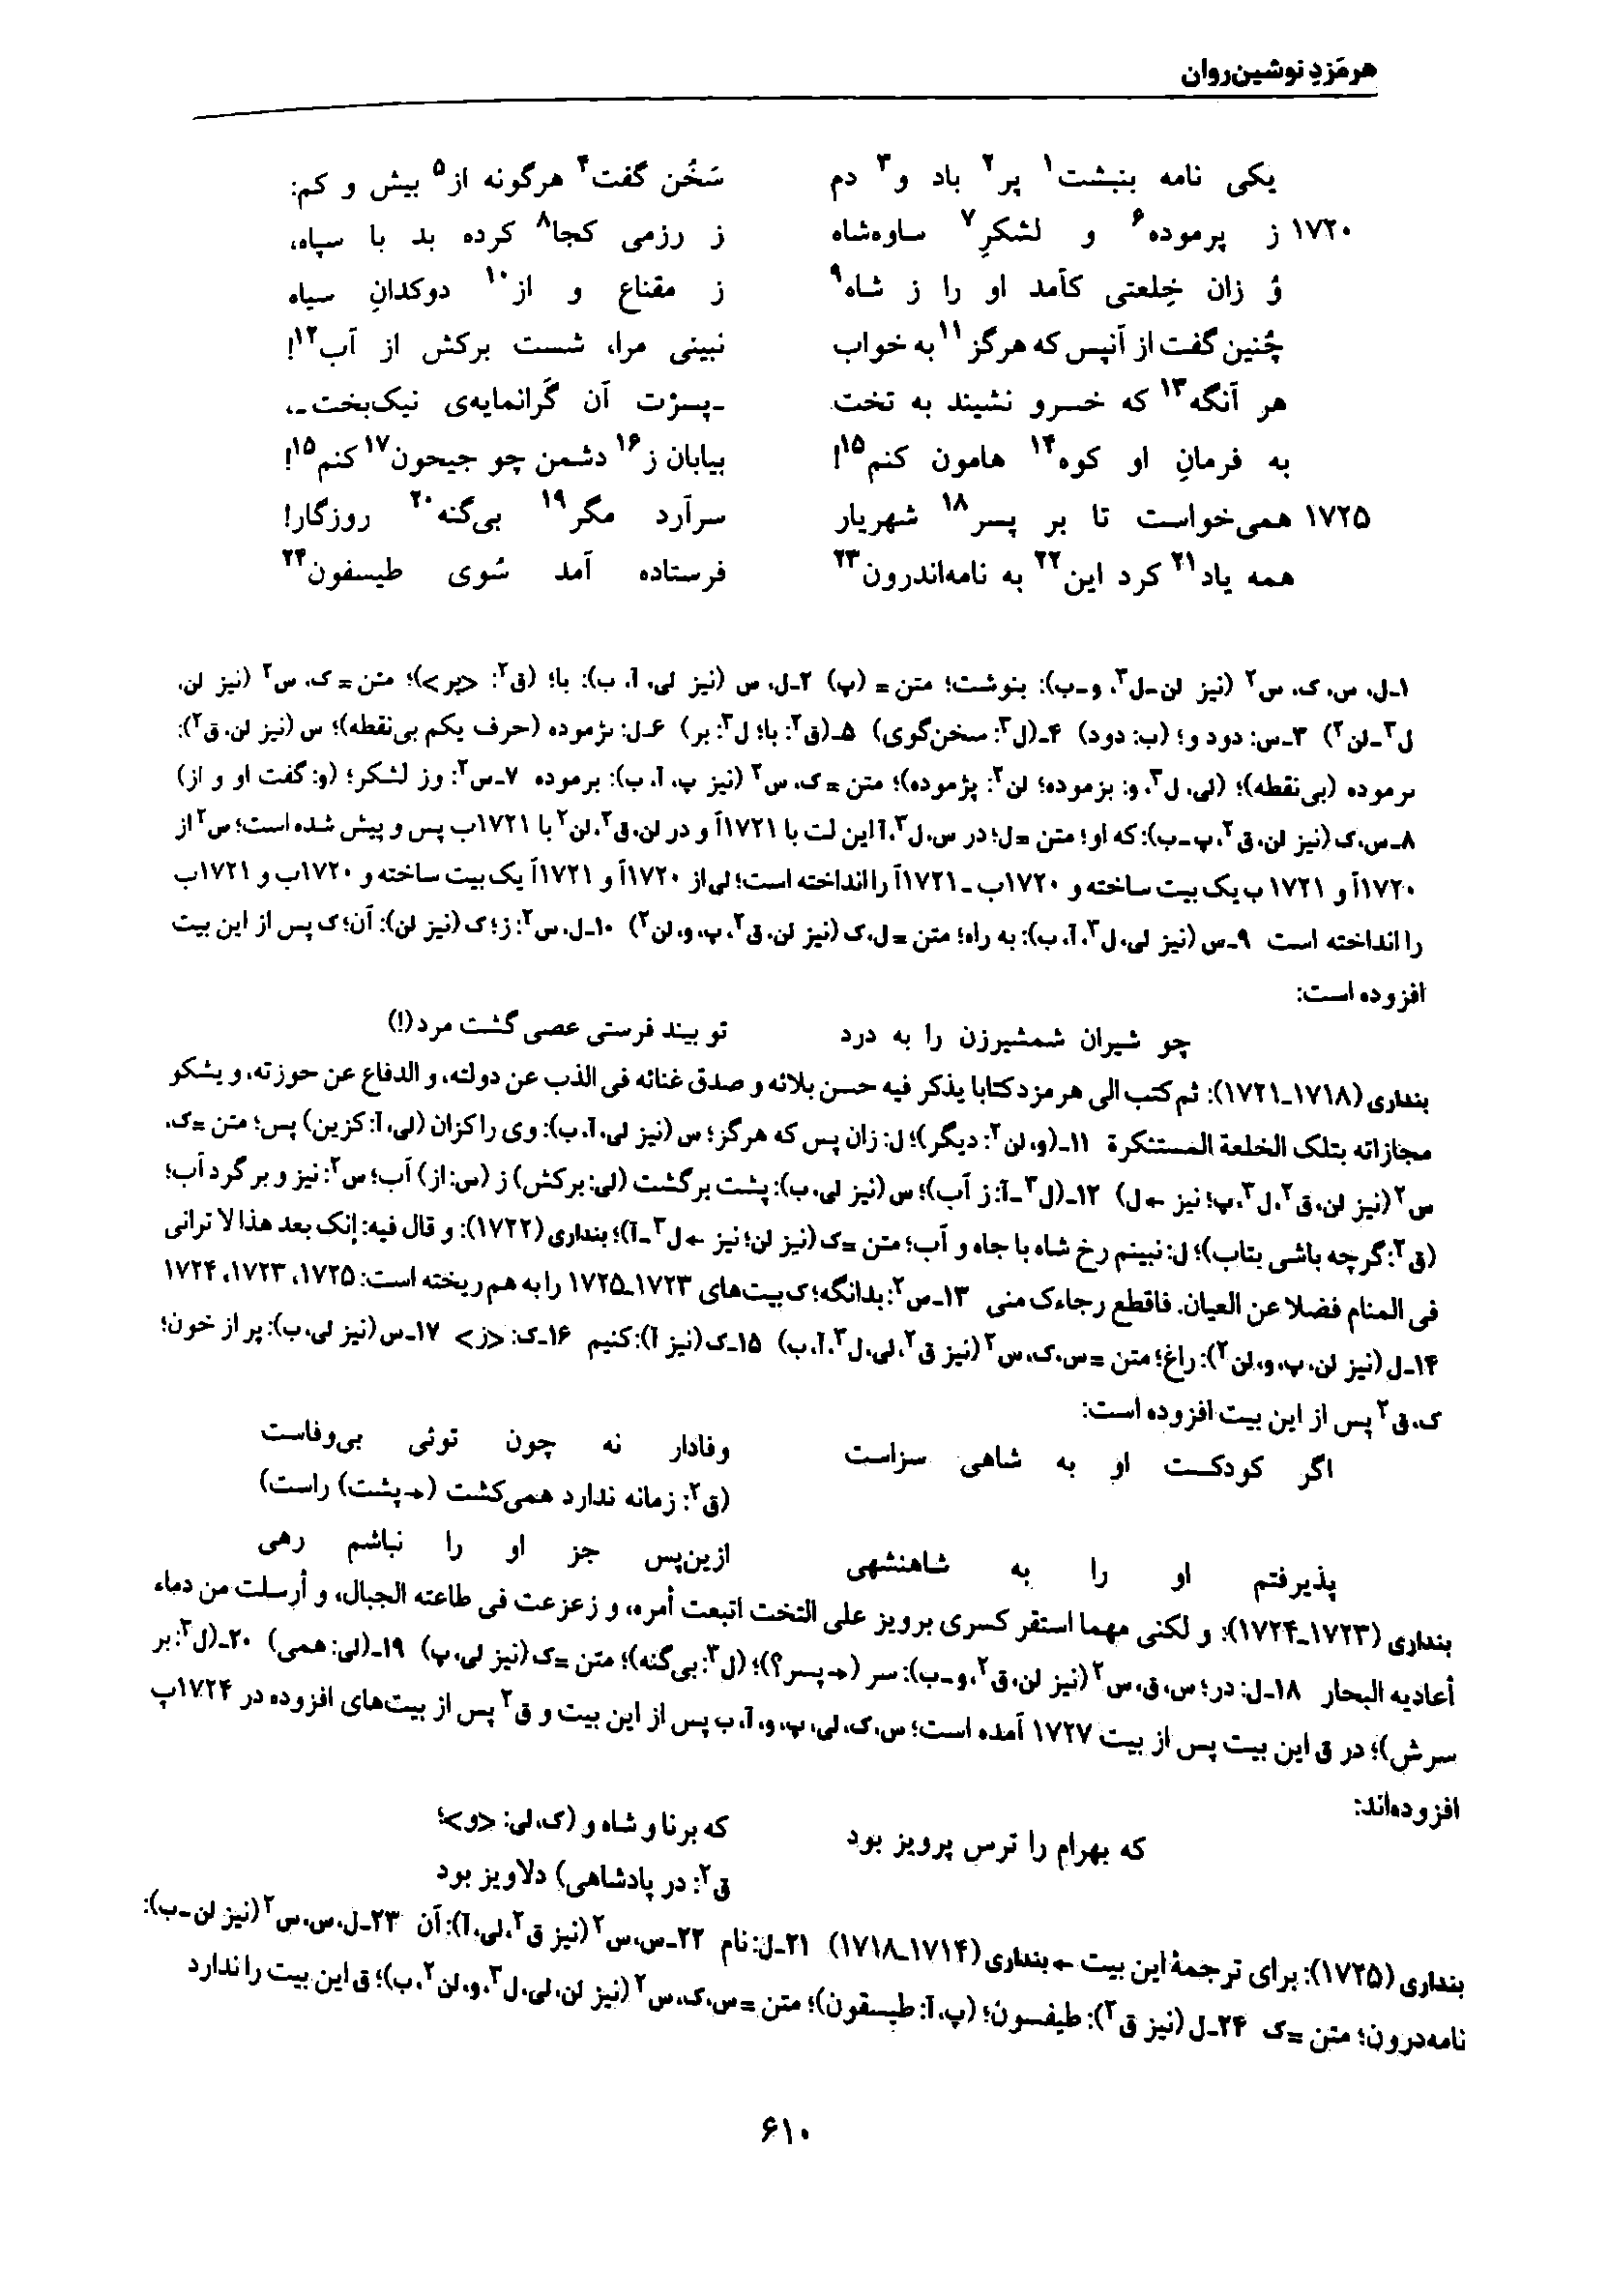 هرمَزدِ نوشین‌روان
یکی نامه بنبشت۱ پر۲ باد و۳ دم سَخُن گفت۴ هرگونه از۵ بیش و کم:
۱۷۲۰ ز پرموده۶ و لشکرِ۷ ساوه‌شاه ز رزمی کجا۸ کرده بد با سپاه،
وُ زان خِلعتی کآمد او را ز شاه۹ ز مقناع و از۱۰ دوکدانِ سیاه
چُنین گفت از آنپس که هرگز۱۱ به خواب نبینی مرا، شست برکش از آب۱۲!
هر آنگه۱۳ که خسرو نشیند به تخت ـ‌پسرْت آن گرانمایه‌ی نیک‌بخت‌ـ،
به فرمانِ او کوه۱۴ هامون کنم۱۵! بیابان ز۱۶ دشمن چو جیحون۱۷ کنم۱۵!
۱۷۲۵ همی‌خواست تا بر پسر۱۸ شهریار سرآرد مگر۱۹ بی‌گنه۲۰ روزگار!
همه یاد۲۱ کرد این۲۲ به نامه‌اندرون۲۳ فرستاده آمد سُوی طیسفون۲۴
۱ـ‌ل، س، ک، س۲ (نیز لن‌ـ‌ل۳، و‌ـ‌ب): بنوشت؛ متن = (پ) ۲ـ‌ل، س (نیز لی، آ، ب): با؛ (ق۲: <پر>)؛ متن = ک، س۲ (نیز لن،
ل۳‌ـ‌لن۲) ۳ـ‌س: دود و؛ (ب: دود) ۴ـ‌(ل۳: سخن‌گوی) ۵ـ‌(ق۲: با؛ ل۳: بر) ۶ـ‌ل: ٮژموده (حرف یکم بی‌نقطه)؛ س (نیز لن، ق۲):
ٮرموده (بی‌نقطه)؛ (لی، ل۳، و: بزموده؛ لن۲: پژموده)؛ متن = ک، س۲ (نیز پ، آ، ب): برموده ۷ـ‌س۲: وز لشکر؛ (و: گفت او و از)
۸ـ‌س، ک (نیز لن، ق۲، پ‌ـ‌ب): که او؛ متن = ل؛ در س، ل۳، آ این لت با ۱۷۲۱آ و در لن، ق۲، لن۲ با ۱۷۲۱ب پس و پیش شده است؛ س۲ از
۱۷۲۰آ و ۱۷۲۱ ب یک بیت ساخته و ۱۷۲۰ب ـ ۱۷۲۱آ را انداخته است؛ لی از ۱۷۲۰آ و ۱۷۲۱آ یک بیت ساخته و ۱۷۲۰ب و ۱۷۲۱ب
را انداخته است ۹ـ‌س (نیز لی، ل۳، آ، ب): به راه؛ متن = ل، ک (نیز لن، ق۲، پ، و، لن۲) ۱۰ـ‌ل، س۲: ز؛ ک (نیز لن): آن؛ ک پس از این بیت
افزوده است:
چو شیران شمشیرزن را به درد تو بیند فرستی عصی گشت مرد(!)
بنداری (۱۷۱۸ـ۱۷۲۱): ثم کتب الی هرمزد کتابا یذکر فیه حسن بلائه و صدق غنائه فی الذب عن دولته، و الدفاع عن حوزته، و یشکو
مجازاته بتلک الخلعة المستنکرة ۱۱ـ‌(و، لن۲: دیگر)؛ ل: زان پس که هرگز؛ س (نیز لی، آ، ب): وی را کزان (لی، آ: کزین) پس؛ متن = ک،
س۲ (نیز لن، ق۲، ل۳، پ؛ نیز ← ل) ۱۲ـ‌(ل۳‌ـ‌آ: ز آب)؛ س (نیز لی، ب): پشت برگشت (لی: برکش) ز (س: از) آب؛ س۲: نیز و بر گرد آب؛
(ق۲: گرچه باشی بتاب)؛ ل: نبینم رخ شاه با جاه و آب؛ متن = ک (نیز لن؛ نیز ← ل۳‌ـ‌آ)؛ بنداری (۱۷۲۲): و قال فیه: إنک بعد هذا لا ترانی
فی المنام فضلا عن العیان. فاقطع رجاءک منی ۱۳ـ‌س۲: بدانگه؛ ک بیت‌های ۱۷۲۳ـ۱۷۲۵ را به هم ریخته است: ۱۷۲۵، ۱۷۲۳، ۱۷۲۴
۱۴ـ‌ل (نیز لن، پ، و، لن۲): راغ؛ متن = س، ک، س۲ (نیز ق۲، لی، ل۳، آ، ب) ۱۵ـ‌ک (نیز آ): کنیم ۱۶ـ‌ک: <ز> ۱۷ـ‌س (نیز لی، ب): پر از خون؛
ک، ق۲ پس از این بیت افزوده است:
اگر کودکست او به شاهی سزاست وفادار نه چون توئی بی‌وفاست
(ق۲: زمانه ندارد همی‌کشت (→ پشت) راست)
پذیرفتم او را به شاهنشهی ازین‌پس جز او را نباشم رهی
بنداری (۱۷۲۳ـ۱۷۲۴): و لکنی مهما استقر کسری برویز علی التخت اتبعت أمره، و زعزعت فی طاعته الجبال، و أرسلت من دماء
أعادیه البحار ۱۸ـ‌ل: در؛ س، ق، س۲ (نیز لن، ق۲، و‌ـ‌ب): سر (→ پسر؟)؛ (ل۳: بی‌گنه)؛ متن = ک (نیز لی، پ) ۱۹ـ‌(لی: همی) ۲۰ـ‌(ل۳: بر
سرش)؛ در ق این بیت پس از بیت ۱۷۲۷ آمده است؛ س، ک، لی، پ، و، آ، ب پس از این بیت و ق۲ پس از بیت‌های افزوده در ۱۷۲۴پ
افزوده‌اند:
که بهرام را ترس پرویز بود که برنا و شاه و (ک، لی: <و>؛
ق۲: در پادشاهی) دلاویز بود
بنداری (۱۷۲۵): برای ترجمهٔ این بیت ← بنداری (۱۷۱۴ـ۱۷۱۸) ۲۱ـ‌ل: نام ۲۲ـ‌س، س۲ (نیز ق۲، لی، آ): آن ۲۳ـ‌ل، س، س۲ (نیز لن‌ـ‌ب):
نامه‌درون؛ متن = ک ۲۴ـ‌ل (نیز ق۲): طیفسون؛ (پ، آ: طیسقون)؛ متن = س، ک، س۲ (نیز لن، لی، ل۳، و، لن۲، ب)؛ ق این بیت را ندارد
۶۱۰